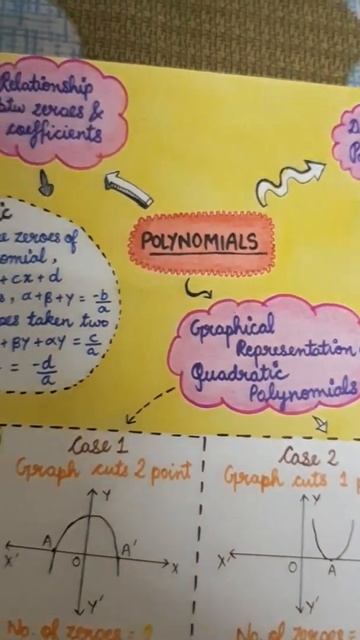 Relationship
btw zeroes &
coefficients
POLYNOMIALS
zeroes of
+cx+d
α+β+γ = -b/a
taken two
+βγ+αγ = c/a
= -d/a
Graphical
Representation
Quadratic
Polynomials
Case 1
Graph cuts 2 point
Y
A
A'
X'
O
X
Y'
No. of zeroes = 2
Case 2
Graph cuts 1
Y
X'
O
A
Y'
No. of zeroes =